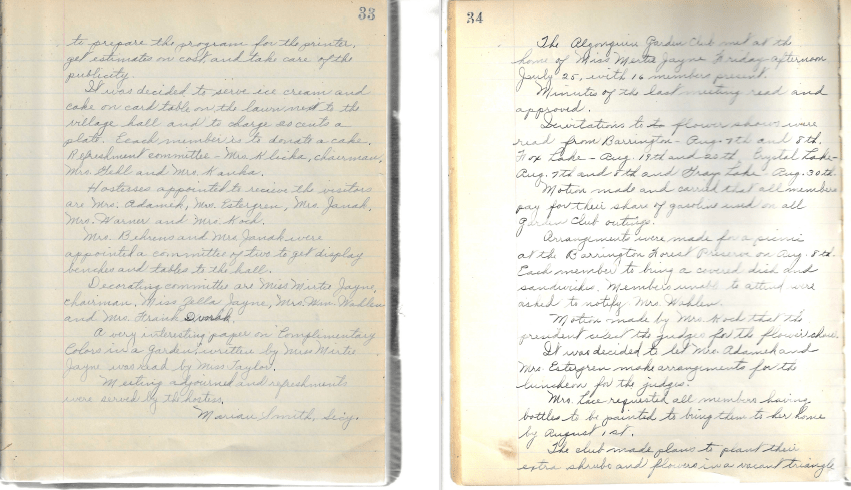 33
to prepare the program for the printer,
get estimates on cost and take care of the
publicity.
It was decided to serve ice cream and
cake on card table on the lawn next to the
village hall and to charge 20 cents a
plate. Each member is to donate a cake.
Refreshment committee - Mrs. Klecka, chairman,
Mrs. Gehl and Mrs. Kanka.
Hostesses appointed to receive the visitors
are Mrs. Adamek, Mrs. Estergren, Mrs. Janak,
Mrs. Warner and Mrs. Koch.
Mrs. Behrens and Mrs. Janak were
appointed a committee of two to get display
benches and tables to the hall.
Decorating committee are Miss Mertie Jayne,
chairman, Miss Zella Jayne, Mrs. Wm. Wahlen
and Mrs. Frank Dvorak.
A very interesting paper on "Complimentary
Colors in a Garden" written by Miss Mertie
Jayne was read by Miss Taylor.
Meeting adjourned and refreshments
were served by the hostess.
Marian Smith, Secy.
34
The Algonquin Garden Club met at the
home of Miss Mertie Jayne Friday afternoon
July 25, with 16 members present.
Minutes of the last meeting read and
approved.
Invitations to flower shows were
read from Barrington - Aug. 7th and 8th.
Fox Lake - Aug. 19th and 20th, Crystal Lake -
Aug. 7th and 8th and Grays Lake Aug. 30th.
Motion made and carried that all members
pay for their share of gasoline used on all
Garden Club outings.
Arrangements were made for a picnic
at the Barrington Forest Preserve on Aug. 8th.
Each member to bring a covered dish and
sandwiches. Members unable to attend were
asked to notify Mrs. Wahlen.
Motion made by Mrs. Koch that the
president select the judges for the flower show.
It was decided to let Mrs. Adamek and
Mrs. Estergren make arrangements for the
luncheon for the judges.
Mrs. requested all members having
bottles to be painted to bring them to her home
by August 1st.
The club made plans to plant their
extra shrubs and flowers in a vacant triangle